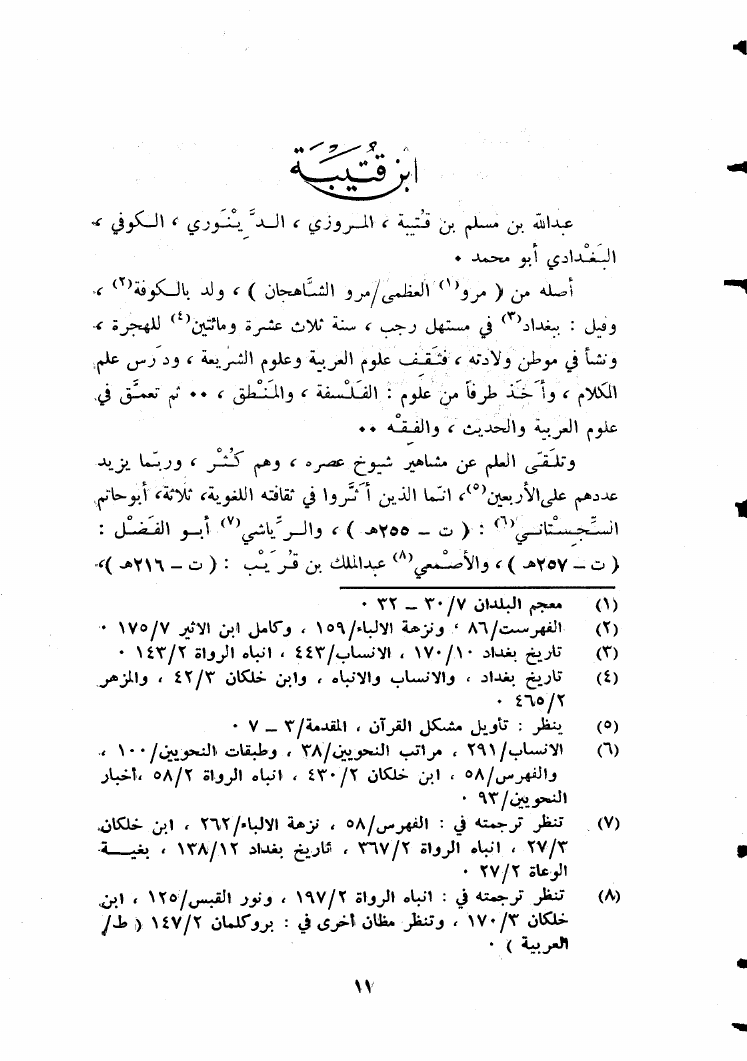 ابن قتيبة
عبدالله بن مسلم بن قُتيبة ، المـروزي ، الـدَّيْنَـوري ، الـكوفي ،
البَغْـدادي أبو محمد ٠
أصله من ( مرو(١) العظمى/مرو الشّاهجان ) ، ولد بالـكوفة(٢) ،
وقيل : ببغداد(٣) في مستهل رجب ، سنة ثلاث عشرة ومائتين(٤) للهجرة ،
ونشأ في موطن ولادته ، فثَقِـف علوم العربية وعلوم الشريعة ، ودرس علم
الكلام ، وأخَـذ طرفاً من علوم : الفَـلْسفة ، والمَنْطق ، ٠٠ ثم تعمَّق في
علوم العربية والحديث ، والفِقْـه ٠٠
وتلـقّى العلم عن مشاهير شيوخ عصره ، وهم كُثْـر ، وربّما يزيد
عددهم على الأربعين(٥)، انّما الذين أثّروا في ثقافته اللغوية، ثلاثة، أبوحاتم
السِّجِسْتانـي(٦) : ( ت ــ ٢٥٥هـ ) ، والـرِّياشي(٧) أبـو الفَضْـل :
( ت ــ ٢٥٧هـ ) ، والأصْمَعي(٨) عبدالملك بن قُرَيْب : ( ت ــ ٢١٦هـ )،
(١) معجم البلدان ٣٠/٧ ــ ٣٢ ٠
(٢) الفهرست/٨٦ ، ونزهة الالباء/١٥٩ ، وكامل ابن الاثير ١٧٥/٧ ٠
(٣) تاريخ بغداد ١٧٠/١٠ ، الانساب/٤٤٣ ، انباه الرواة ١٤٣/٢ ٠
(٤) تاريخ بغداد ، والانساب والانباه ، وابن خلكان ٤٢/٣ ، والمزهر
٤٦٥/٢ ٠
(٥) ينظر : تأويل مشكل القرآن ، المقدمة/٣ ــ ٧ ٠
(٦) الانساب/٢٩١ ، مراتب النحويين/٣٨ ، وطبقات النحويين/١٠٠ ،
والفهرس/٥٨ ، ابن خلكان ٤٣٠/٢ ، انباه الرواة ٥٨/٢ ،أخبار
النحويين/٩٣ ٠
(٧) تنظر ترجمته في : الفهرس/٥٨ ، نزهة الالباء/٢٦٢ ، ابن خلكان
٢٧/٣ ، انباه الرواة ٣٦٧/٢ ، تاريخ بغداد ١٣٨/١٢ ، بغيـــة
الوعاة ٢٧/٢ ٠
(٨) تنظر ترجمته في : انباه الرواة ١٩٧/٢ ، ونور القبس/١٢٥ ، ابن
خلكان ١٧٠/٣ ، وتنظر مظان أخرى في : بروكلمان ١٤٧/٢ ( ط/
العربية ) ٠
١١